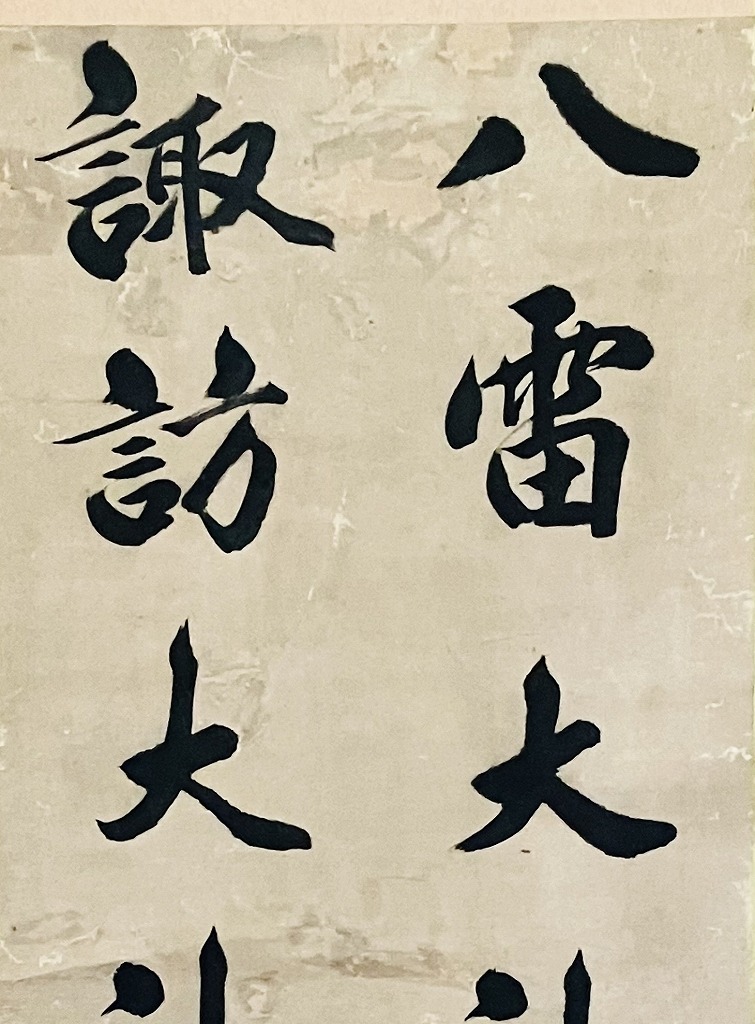 八雷大
諏訪大